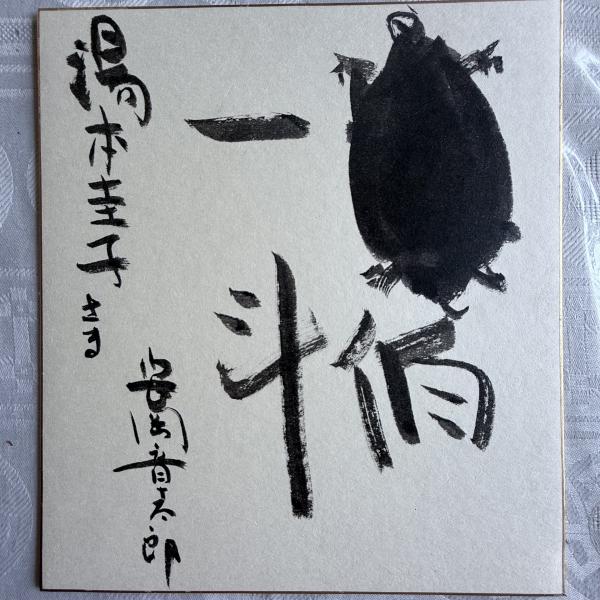 伯
一斗
湯本圭子さま
安岡章太郎